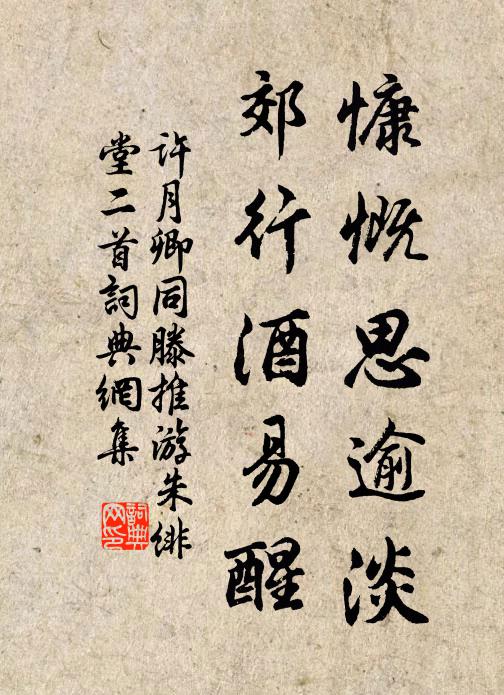 慷慨思逾淡
郊行酒易醒
许月卿同滕推游朱绯
堂二首詞典網集
詞典
网印